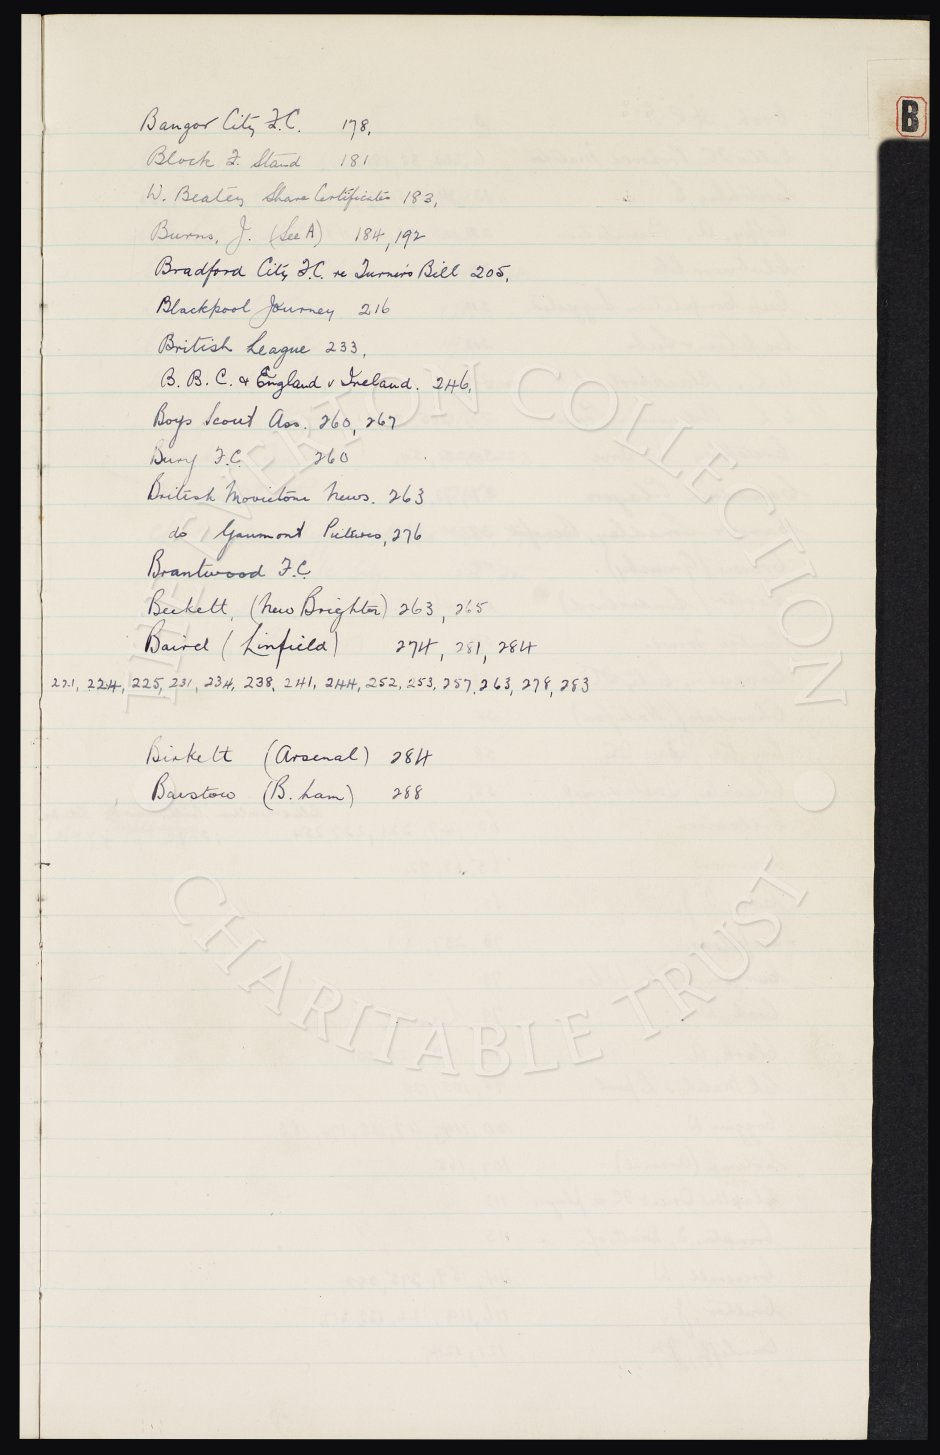 B
Bangor City F.C. 178.
Block F. Stand 181
W. Beatey Share Certificates 183,
Burns, J. (See A) 184, 192
Bradford City F.C. re Turners Bill 205,
Blackpool Journey 216
British League 233,
B. B. C. & England v Ireland. 246,
Boys Scout Ass. 260, 267
Bury F.C. 260
British Movietone News. 263
do Gaumont Pictures, 276
Brantwood F.C.
Beckett, (New Brighton) 263, 265
Baird (Linfield) 274, 281, 284
221, 224, 225, 231, 234, 238, 241, 244, 252, 253, 257, 263, 278, 283
Birkett (Arsenal) 284
Barstow (B. ham) 288
THE EVERTON COLLECTION
CHARITABLE TRUST